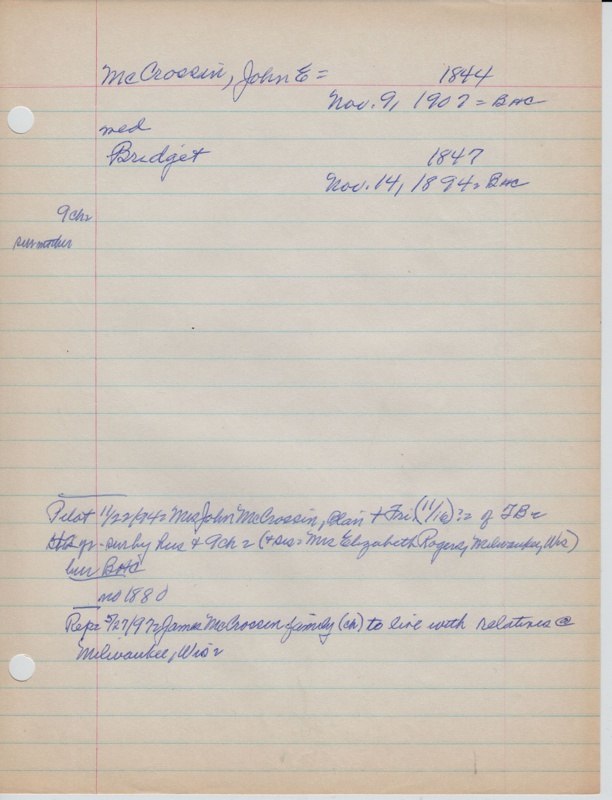 McCrossin, John E = 1844
Nov. 9, 1907 = BHC
med
Bridget 1847
Nov. 14, 1894 = BHC
9 ch =
sur mother
Pilot 11/22/94 = Mrs John McCrossin, Plain + Fri (11/16) ?= of TB =
yr - sur by hus + 9 ch = (+ sis = Mrs Elizabeth Rogers, Milwaukee, Wis)
bur BHC
no 1880
Rep = 5/27/97 = James McCrossin family (ch) to live with relatives @
Milwaukee, Wis =